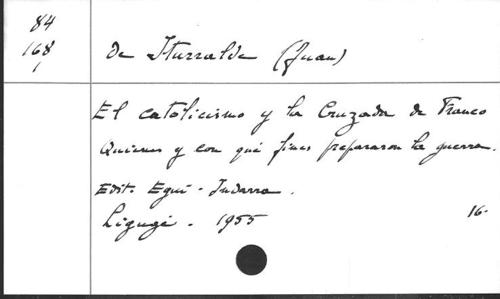 84
168
1
de Iturralde (Juan)
El catolicismo y la Cruzada de Franco
Quienes y con qué fines prepararon la guerra.
Edit. Egui-Indarra.
Ligugé. 1955
16-